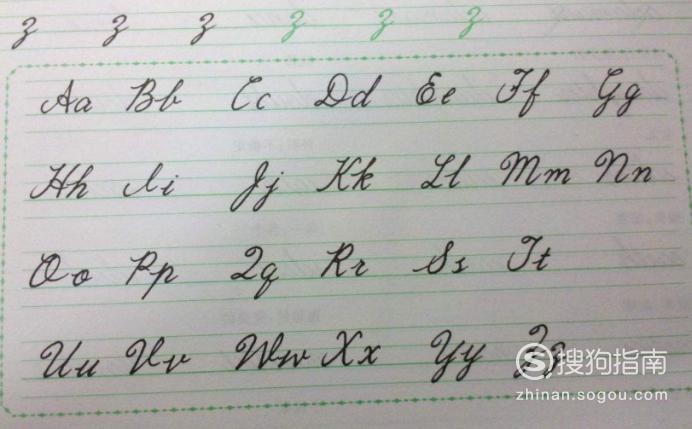 z z z z z z
Aa Bb Cc Dd Ee Ff Gg
Hh Ii Jj Kk Ll Mm Nn
Oo Pp Qq Rr Ss Tt
Uu Vv Ww Xx Yy Zz
搜狗指南
zhinan.sogou.com